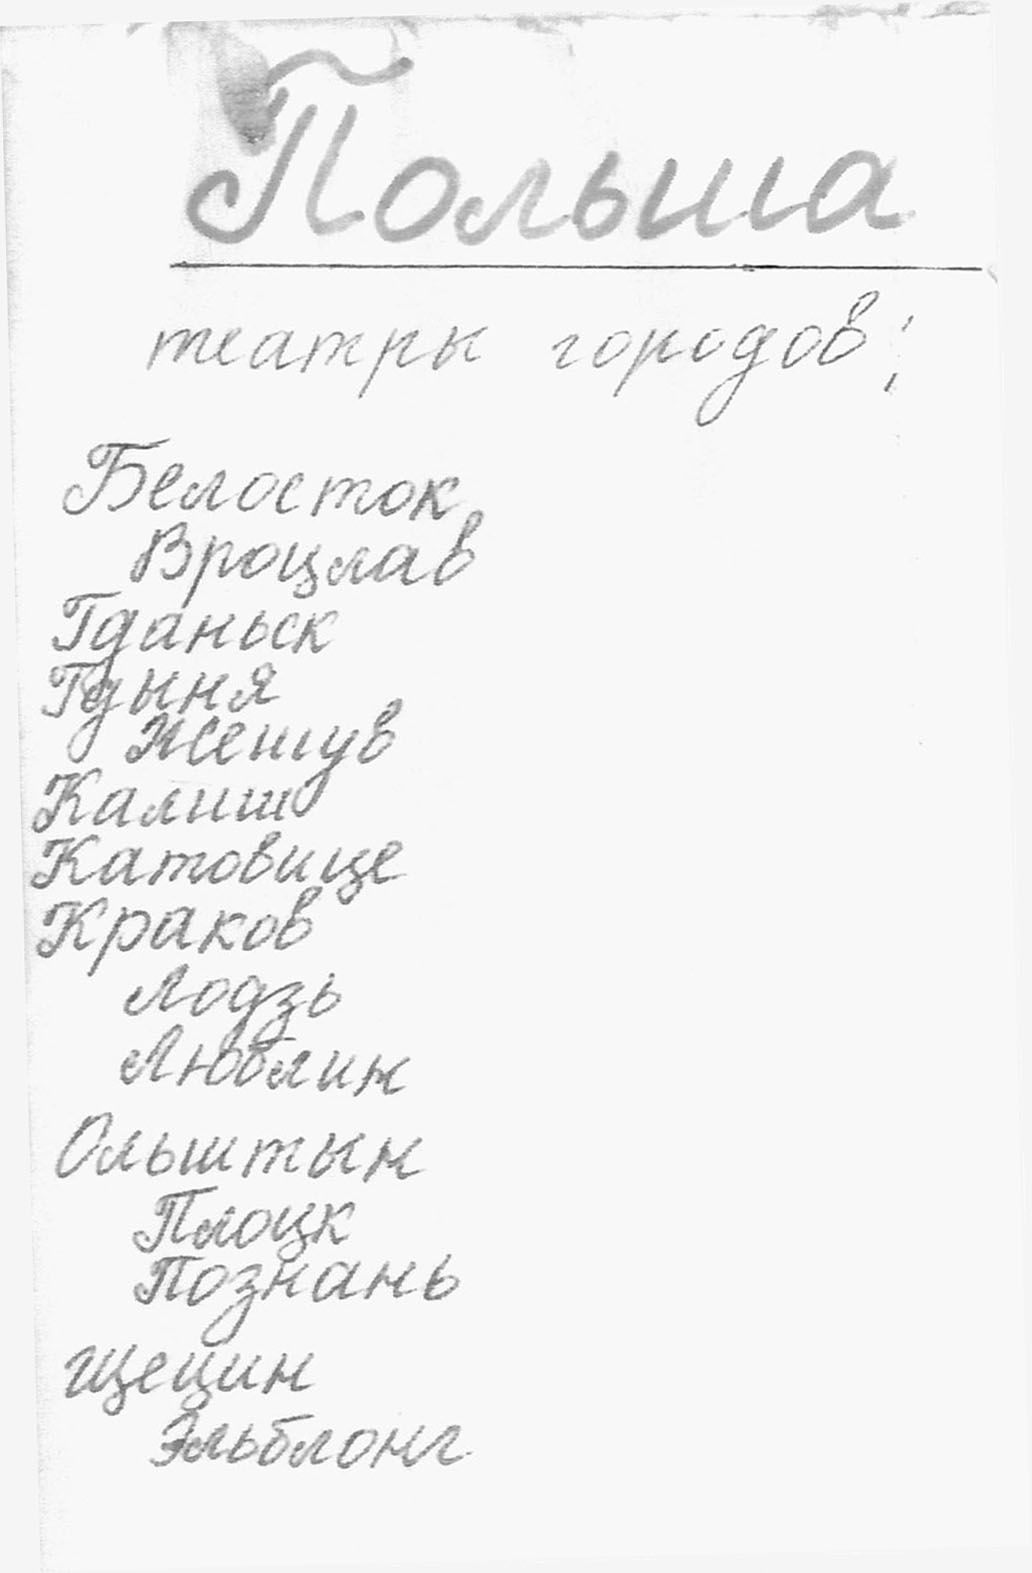 Польша
театры городов:
Белосток
Вроцлав
Гданьск
Гдыня
Жешув
Калиш
Катовице
Краков
Лодзь
Люблин
Ольштын
Плоцк
Познань
Щецин
Эльблонг